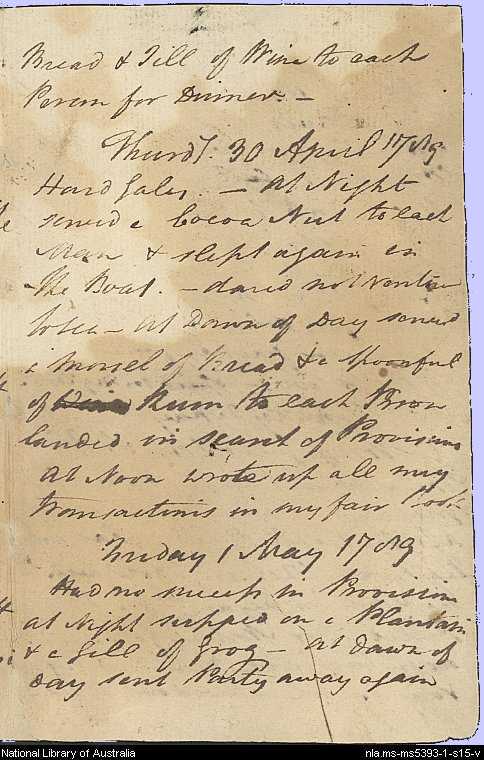 Bread & Jill of Wine to each
Person for Dinner. –
Thursd. 30 April 1789
Hard Gales. – At Night
served a Cocoa Nut to each
Man & slept again in
the Boat. – dared not venture
to sea – at Dawn of Day served
a morsel of Bread & a spoonful
of Rum to each Person
landed in search of Provisions
At Noon wrote up all my
transactions in my fair Book
Friday 1 May 1789
Had no success in Provision
at Night supped on a Plantain
& a Gill of Grog – at dawn of
Day sent Party away again
National Library of Australia
nla.ms-ms5393-1-s15-v